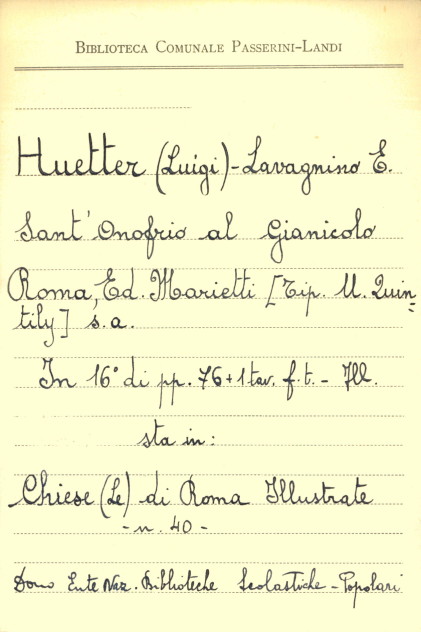 BIBLIOTECA COMUNALE PASSERINI-LANDI
Huetter (Luigi) - Lavagnino E.
Sant' Onofrio al Gianicolo
Roma, Ed. Marietti [Tip. U. Quin=
tily] s.a.
In 16° di pp. 76+1 tav. f.t. - Ill.
sta in:
Chiese (Le) di Roma Illustrate
- n. 40 -
Dono Ente Naz. Biblioteche Scolastiche - Popolari